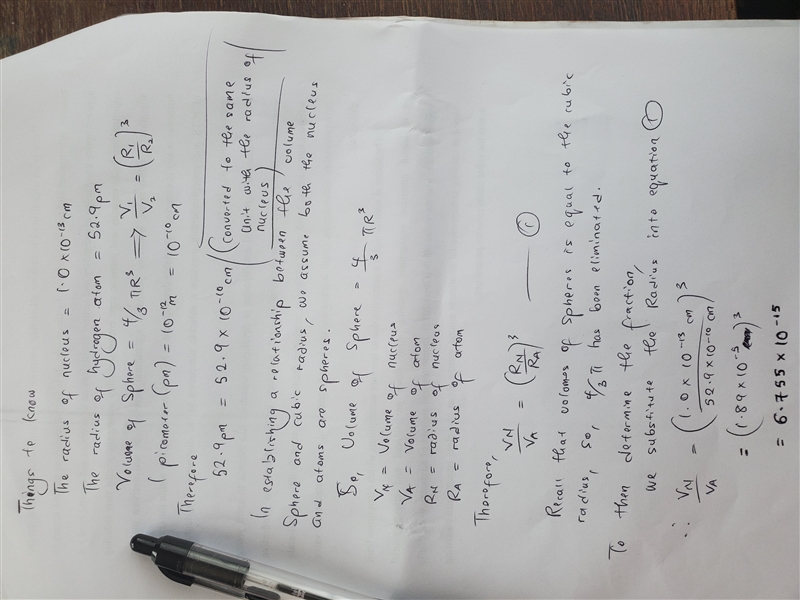 Things to know
The radius of nucleus = 1.0 × 10⁻¹³ cm
The radius of hydrogen atom = 52.9 pm
Volume of sphere = 4/3 πR³ ⟹ V₁/V₂ = (R₁/R₂)³
1 picometer (pm) = 10⁻¹² m = 10⁻¹⁰ cm
Therefore
52.9 pm = 52.9 × 10⁻¹⁰ cm (converted to the same
unit with the radius of
nucleus)
In establishing a relationship between the volume
sphere and cubic radius, we assume both the nucleus
and atoms are spheres.
So, Volume of sphere = 4/3 πR³
V_N = Volume of nucleus
V_A = Volume of atom
R_N = radius of nucleus
R_A = radius of atom
Therefore,
V_N/V_A = (R_N/R_A)³ ——— ①
Recall that volumes of spheres is equal to the cubic
radius, so, 4/3 π has been eliminated.
To then determine the fraction,
we substitute the Radius into equation ①
∴ V_N/V_A = (1.0 × 10⁻¹³ cm / 52.9 × 10⁻¹⁰ cm)³
= (1.89 × 10⁻⁵)³
= 6.755 × 10⁻¹⁵